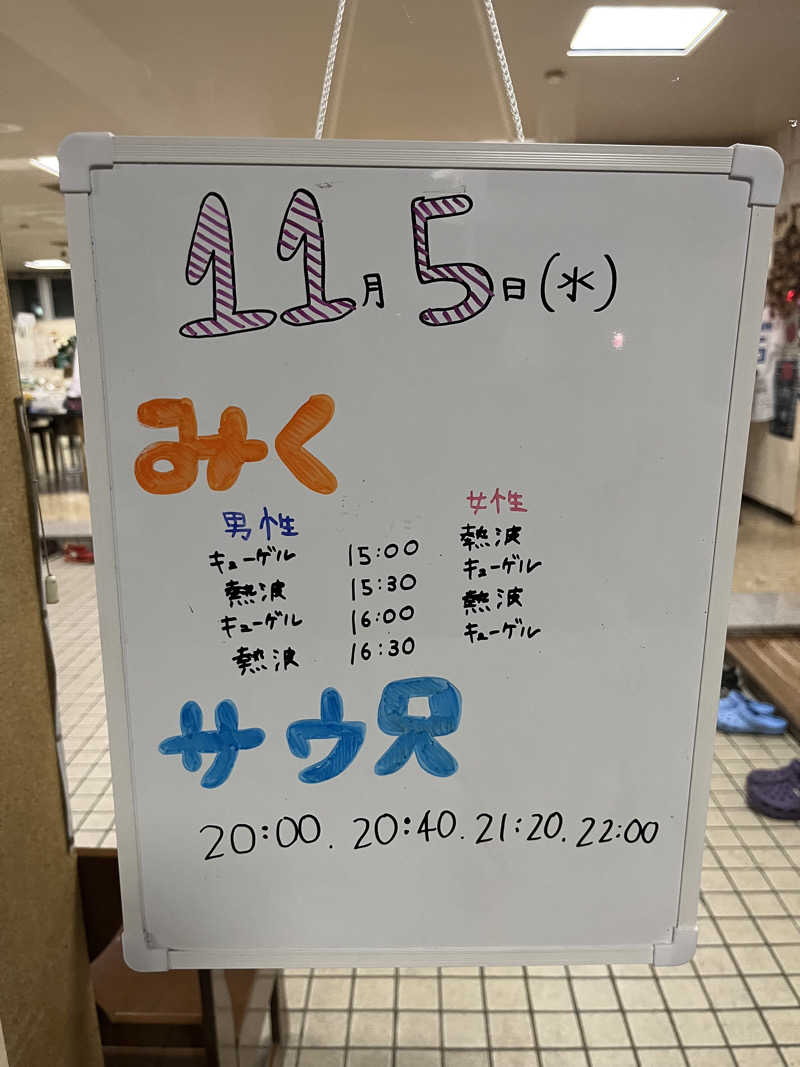 11月5日(水)
みく
男性 女性
キューゲル 15:00 熱波
熱波 15:30 キューゲル
キューゲル 16:00 熱波
熱波 16:30 キューゲル
サウ兄
20:00. 20:40. 21:20. 22:00